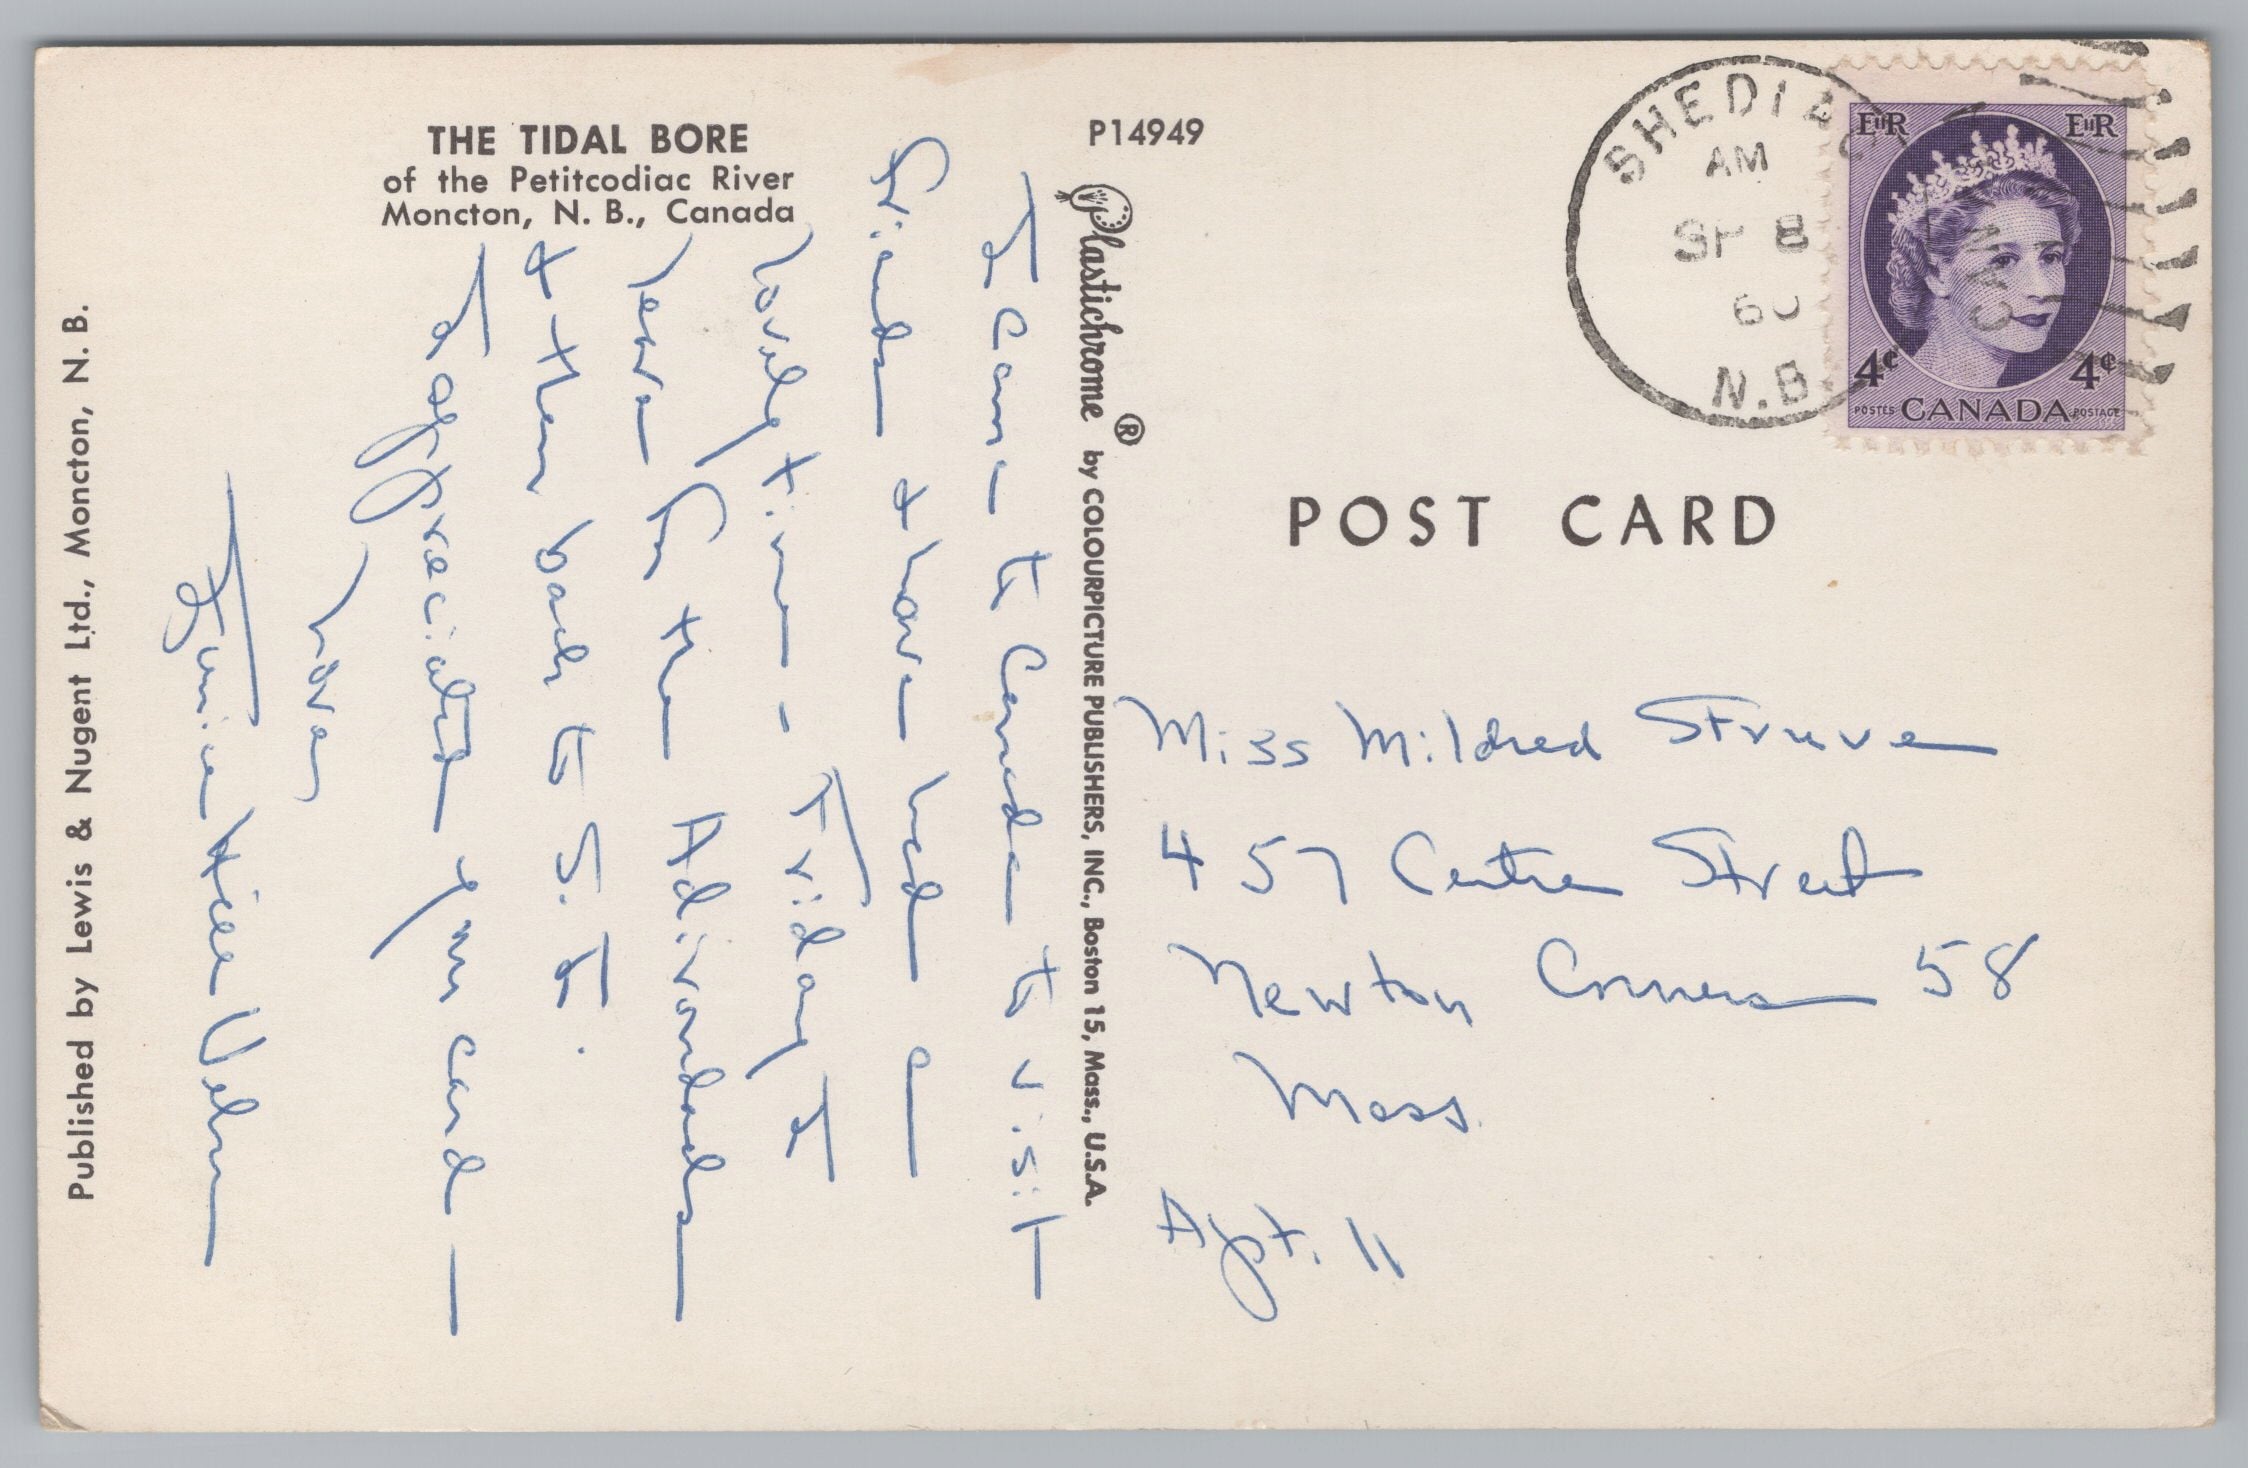 THE TIDAL BORE
of the Petitcodiac River
Moncton, N. B., Canada
P14949
I came to Canada to visit
friends & have had a
lovely time - Friday I
leave for the Adirondacks
& then back to S. I.
I appreciated your card —
Love,
Hill
Published by Lewis & Nugent Ltd., Moncton, N. B.
Plastichrome ® by COLOURPICTURE PUBLISHERS, INC., Boston 15, Mass., U.S.A.
SHEDIAC
AM
SP 8
60
N.B.
EIIR EIIR
4¢ 4¢
POSTES CANADA POSTAGE
POST CARD
Miss Mildred Struve
457 Centre Street
Newton Corners 58
Mass.
Apt. 11